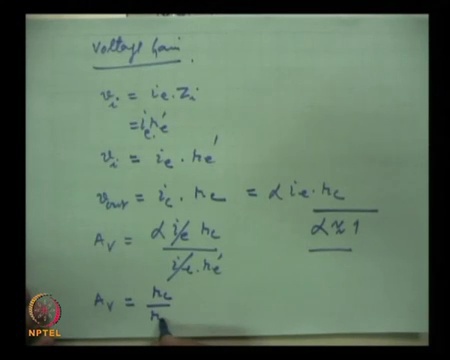 Voltage Gain
v_i = i_e . Z_i
= i_e r_e'
v_i = i_e . r_e'
v_out = i_c . r_c = α i_e . r_c
α ≈ 1
A_v = α i_e r_c / i_e . r_e'
A_v = r_c / r
NPTEL